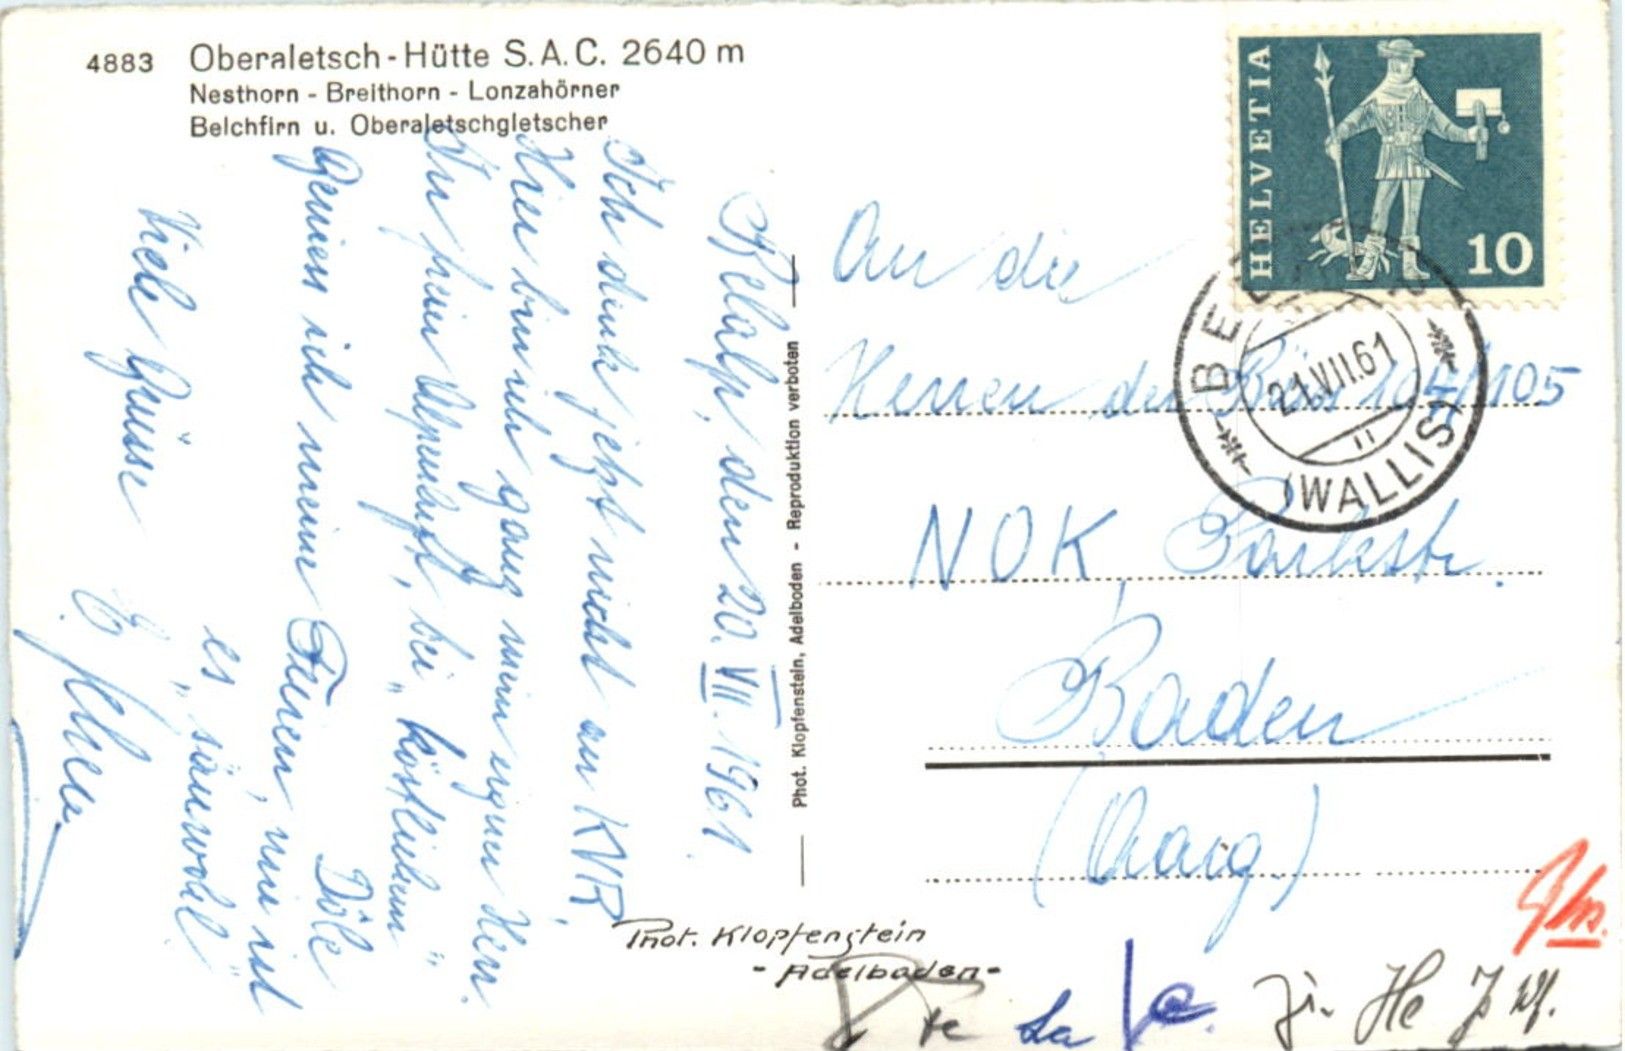 4883 Oberaletsch-Hütte S.A.C. 2640 m
Nesthorn - Breithorn - Lonzahörner
Belchfirn u. Oberaletschgletscher
Belalp, den 20. VII. 1961.
Ich denk jetzt nicht an KVR,
Hier bin ich ganz mein eigner Herr.
In freier Alpenluft, bei „köstlichem" Döle
Geniess ich meine Ferien, mir ist
es „säuwohl"
Viele Grüsse
Phot. Klopfenstein, Adelboden - Reproduktion verboten
Phot. Klopfenstein
- Adelboden -
HELVETIA
10
BELALP
21.VII.61
(WALLIS)
An die
Herren des Büro 104/105
NOK, Parkstr.
Baden
(Aarg.)
te La
He